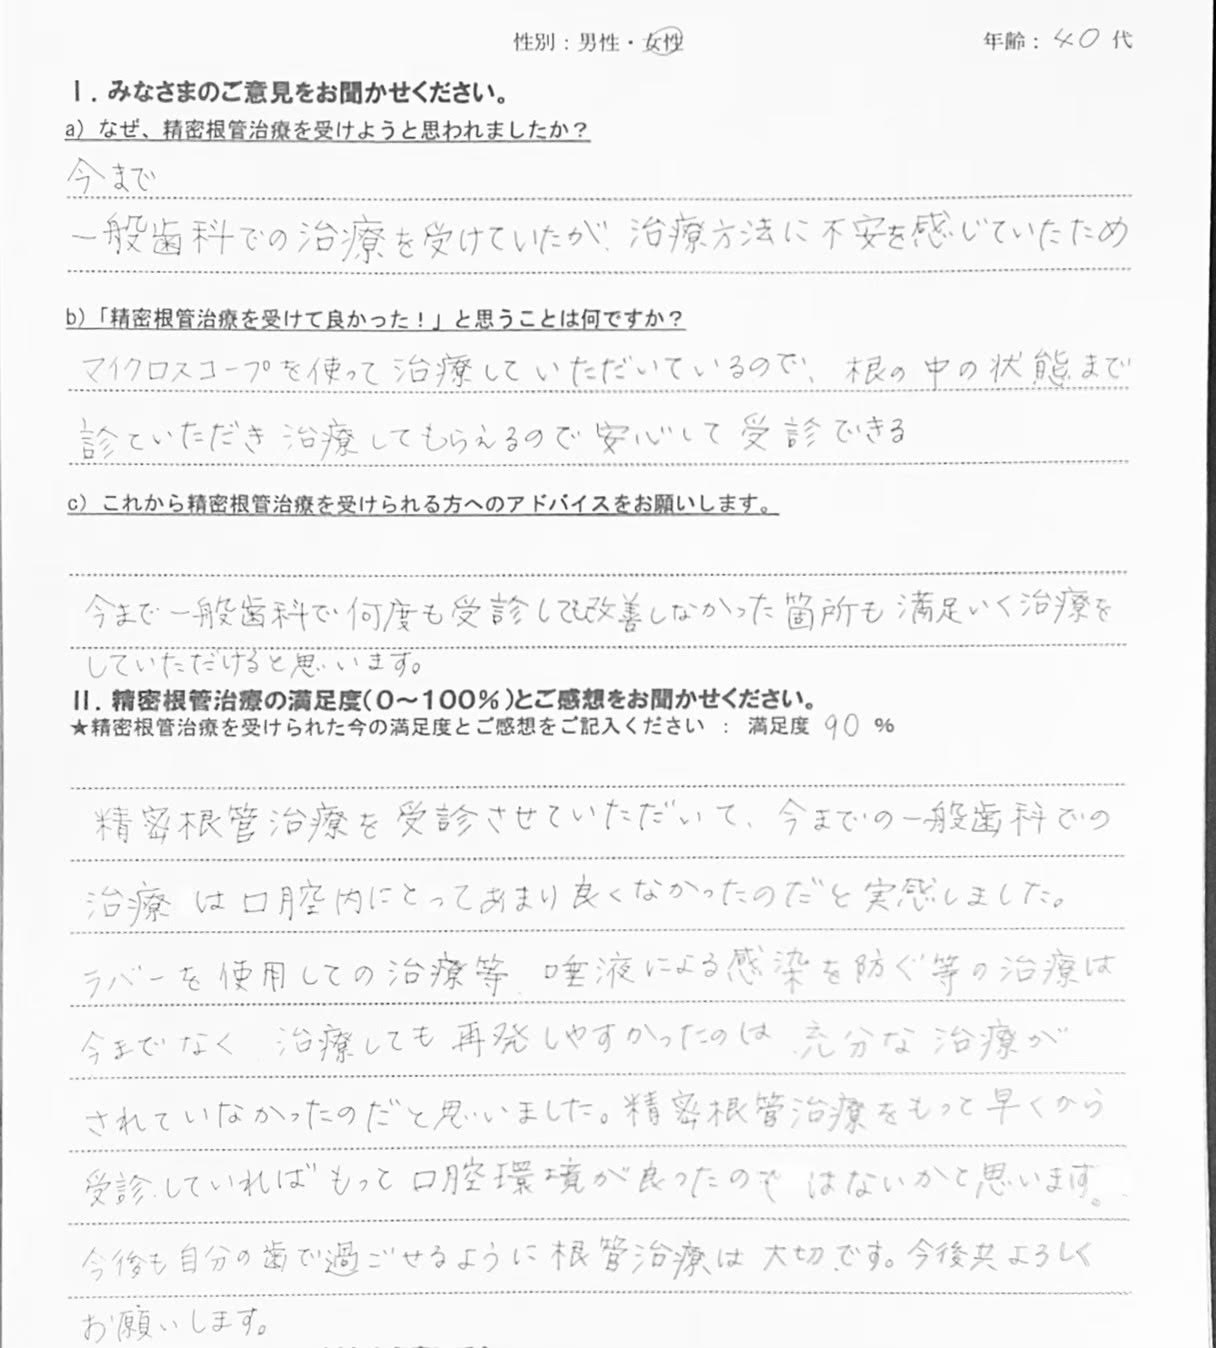 性別：男性・女性 年齢：40代
Ⅰ. みなさまのご意見をお聞かせください。
a）なぜ、精密根管治療を受けようと思われましたか？
今まで
一般歯科での治療を受けていたが、治療方法に不安を感じていたため
b）「精密根管治療を受けて良かった！」と思うことは何ですか？
マイクロスコープを使って治療していただいているので、根の中の状態まで
診ていただき治療してもらえるので安心して受診できる
c）これから精密根管治療を受けられる方へのアドバイスをお願いします。
今まで一般歯科で何度も受診しても改善しなかった箇所も満足いく治療を
していただけると思います。
Ⅱ. 精密根管治療の満足度（0～100％）とご感想をお聞かせください。
★精密根管治療を受けられた今の満足度とご感想をご記入ください ： 満足度 90 ％
精密根管治療を受診させていただいて、今までの一般歯科での
治療は口腔内にとってあまり良くなかったのだと実感しました。
ラバーを使用しての治療等、唾液による感染を防ぐ等の治療は
今までなく、治療しても再発しやすかったのは、充分な治療が
されていなかったのだと思いました。精密根管治療をもって早くから
受診していればもって口腔環境が良ったのではないかと思います。
今後も自分の歯で過ごせるように根管治療は大切です。今後共よろしく
お願いします。